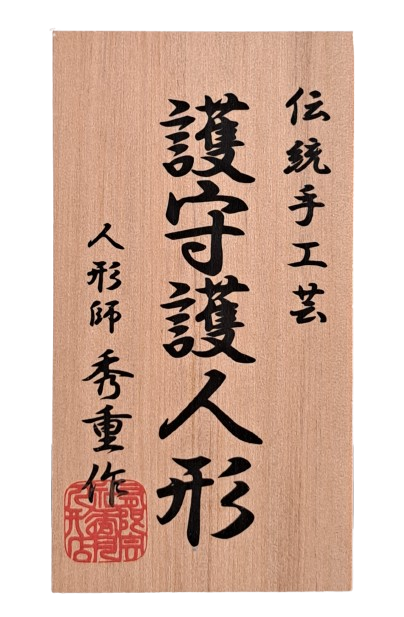 伝統手工芸
護守護人形
人形師 秀重作